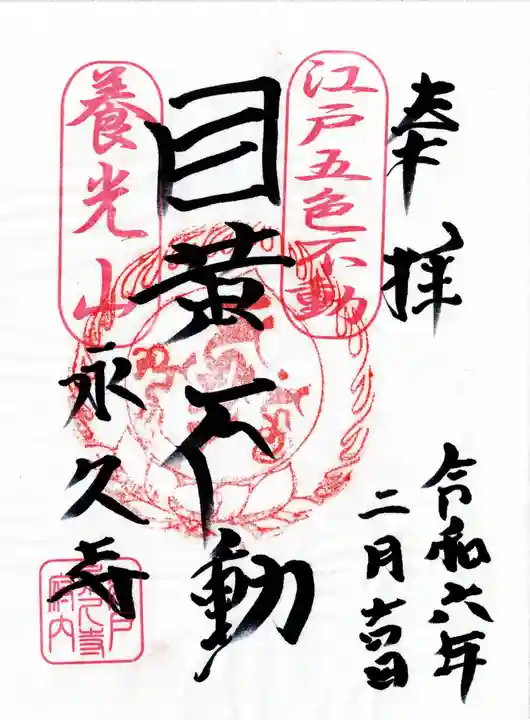 奉拝
令和六年
二月十四日
江戸五色不動
目黄不動
養光山
永久寺